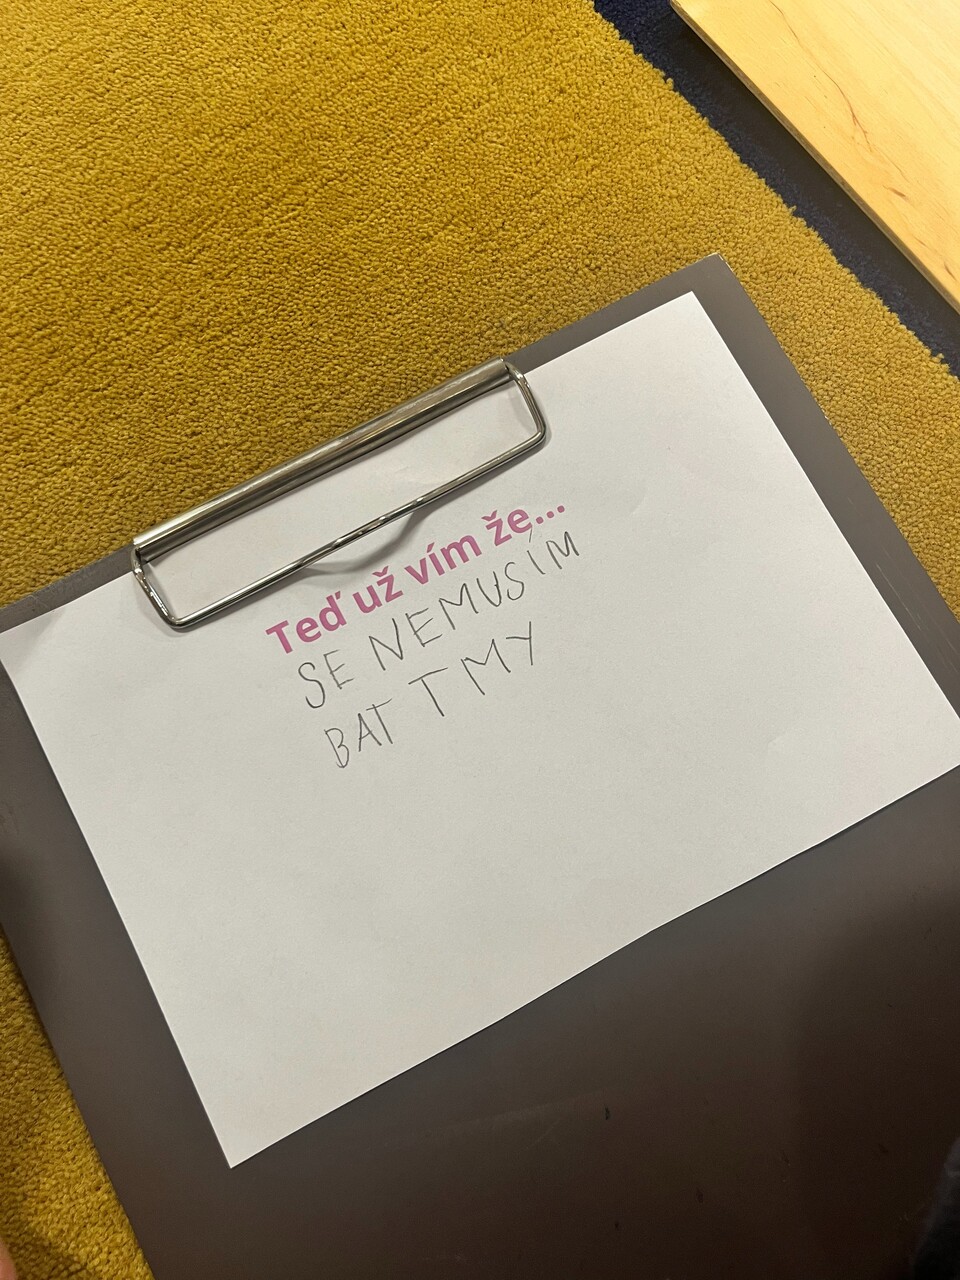 Teď už vím že...
SE NEMUSÍM
BAT TMY